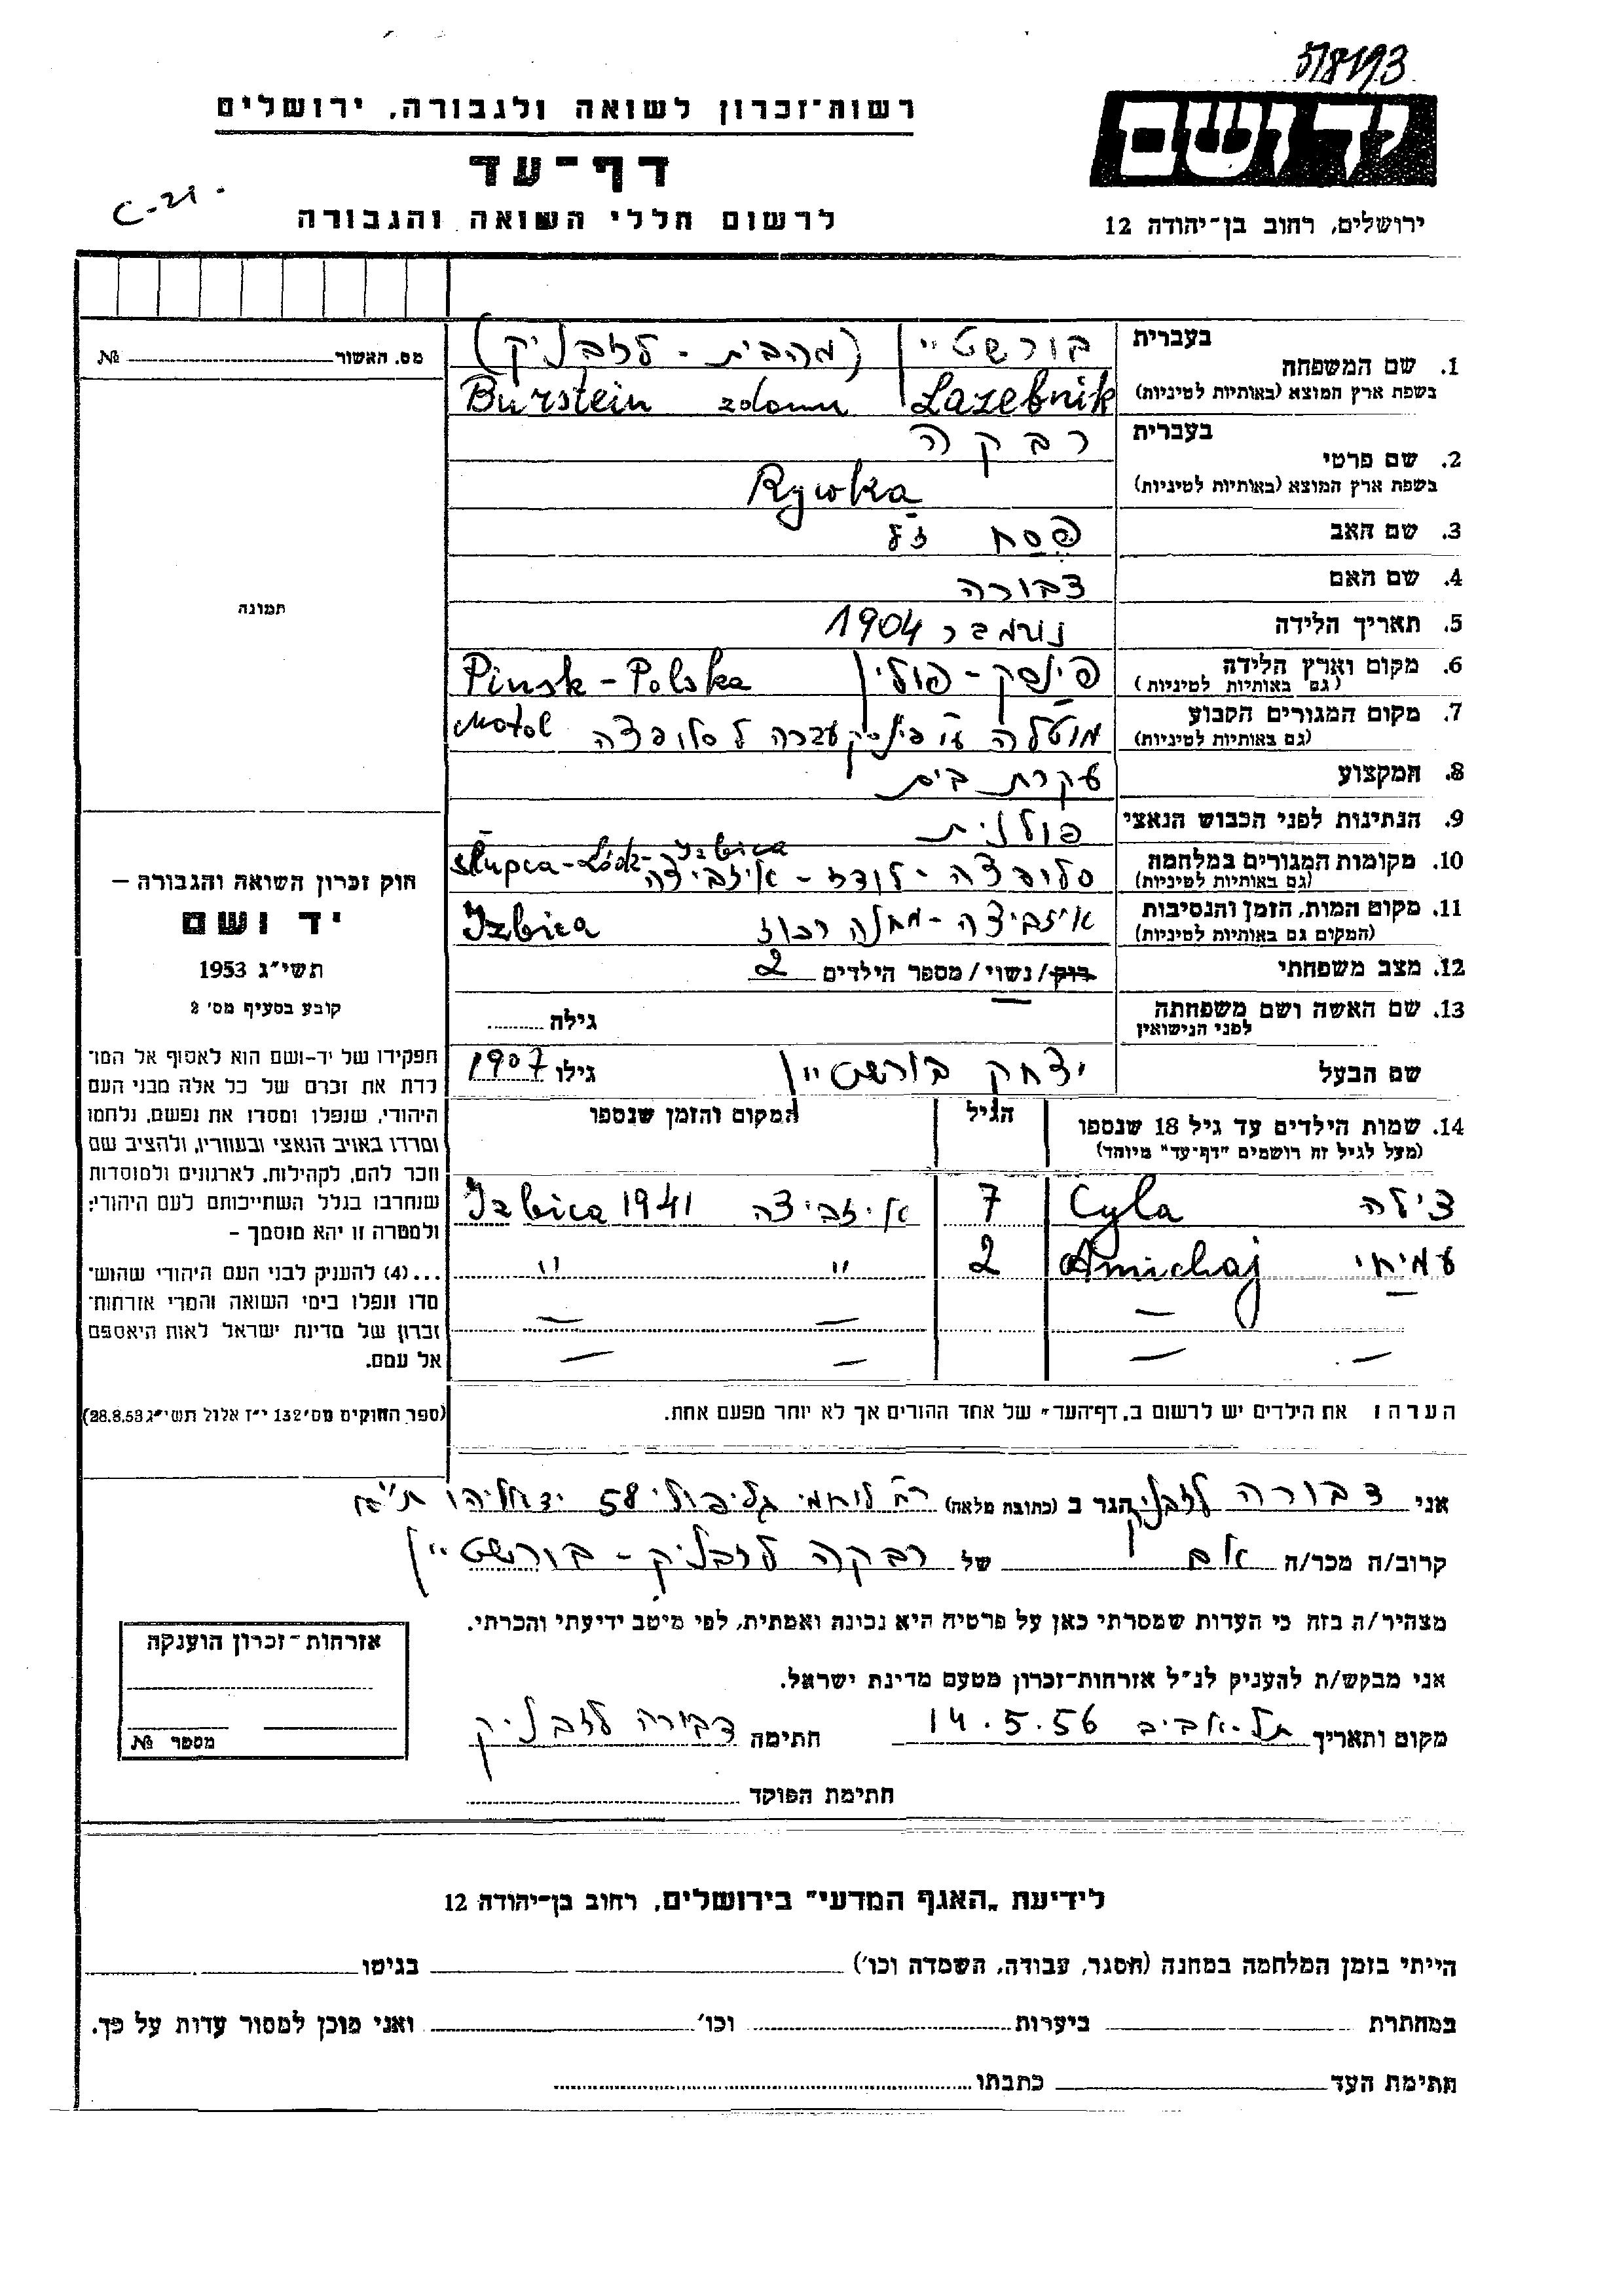 5/8193
רשות־זכרון לשואה ולגבורה, ירושלים
יד ושם
דף־עד
C-21-
לרשום חללי השואה והגבורה
ירושלים, רחוב בן־יהודה 12
מס. האשור № 
תמונה
חוק זכרון השואה והגבורה —
יד ושם
תשי״ג 1953
קובע בסעיף מס׳ 2
תפקידו של יד-ושם הוא לאסוף אל המו־
לדת את זכרם של כל אלה מבני העם
היהודי, שנפלו ומסרו את נפשם, נלחמו
ומרדו באויב הנאצי ובעוזריו, ולהציב שם
וזכר להם, לקהילות, לארגונים ולמוסדות
שנחרבו בגלל השתייכותם לעם היהודי;
ולמטרה זו יהא מוסמך —
...(4) להעניק לבני העם היהודי שהוש־
מדו ונפלו בימי השואה והמרי אזרחות־
זכרון של מדינת ישראל לאות היאספם
אל עמם.
(ספר החוקים מס׳ 132 י״ז אלול תשי״ג 28.8.53)
1. שם המשפחה
בעברית בורשטיין (מהבית - לזבניק)
בשפת ארץ המוצא (באותיות לטיניות) Burstein z domu Lazebnik
2. שם פרטי
בעברית רבקה
בשפת ארץ המוצא (באותיות לטיניות) Rywka
3. שם האב פסח ז״ל
4. שם האם דבורה
5. תאריך הלידה נובמבר 1904
6. מקום וארץ הלידה (גם באותיות לטיניות) פינסק - פולין Pinsk - Polska
7. מקום המגורים הקבוע (גם באותיות לטיניות) מוטלה ע״י פינסק עברה לסלופצה Motol
8. המקצוע עקרת בית
9. הנתינות לפני הכבוש הנאצי פולנית
10. מקומות המגורים במלחמה (גם באותיות לטיניות) סלופצה - לודז - איזביצה Słupca - Łódz - Izbica
11. מקום המות, הזמן והנסיבות (המקום גם באותיות לטיניות) איזביצה - מחנה רכוז Izbica
12. מצב משפחתי רוק/נשוי/מספר הילדים 2
13. שם האשה ושם משפחתה לפני הנישואין גילה
שם הבעל יצחק בורשטיין גילו 1907
14. שמות הילדים עד גיל 18 שנספו הגיל המקום והזמן שנספו
(מעל לגיל זה רושמים "דף־עד" מיוחד)
צילה Cyla 7 איזביצה Izbica 1941
עמיחי Amichaj 2 " "
הערה: את הילדים יש לרשום ב„דף־העד״ של אחד ההורים אך לא יותר מפעם אחת.
אני דבורה לזבניק הגר ב (כתובת מלאה) רח׳ לוחמי גליפולי 58 יד אליהו ת״א
קרוב/ה מכר/ה אם של רבקה לזבניק - בורשטיין
מצהיר/ה בזה כי העדות שמסרתי כאן על פרטיה היא נכונה ואמתית, לפי מיטב ידיעתי והכרתי.
אני מבקש/ת להעניק לנ״ל אזרחות-זכרון מטעם מדינת ישראל.
מקום ותאריך תל-אביב 14.5.56 חתימה דבורה לזבניק
חתימת הפוקד
אזרחות-זכרון הוענקה
מספר №
לידיעת „האגף המדעי״ בירושלים, רחוב בן-יהודה 12
הייתי בזמן המלחמה במחנה (הסגר, עבודה, השמדה וכו׳) בגיטו
במחתרת ביערות וכו׳ ואני מוכן למסור עדות על כך.
חתימת העד כתבתו